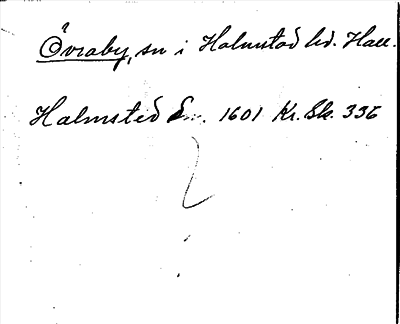 Övraby, sn i Halmstad hd. Hall.
Halmsted 1601 Kr. Sk. 336